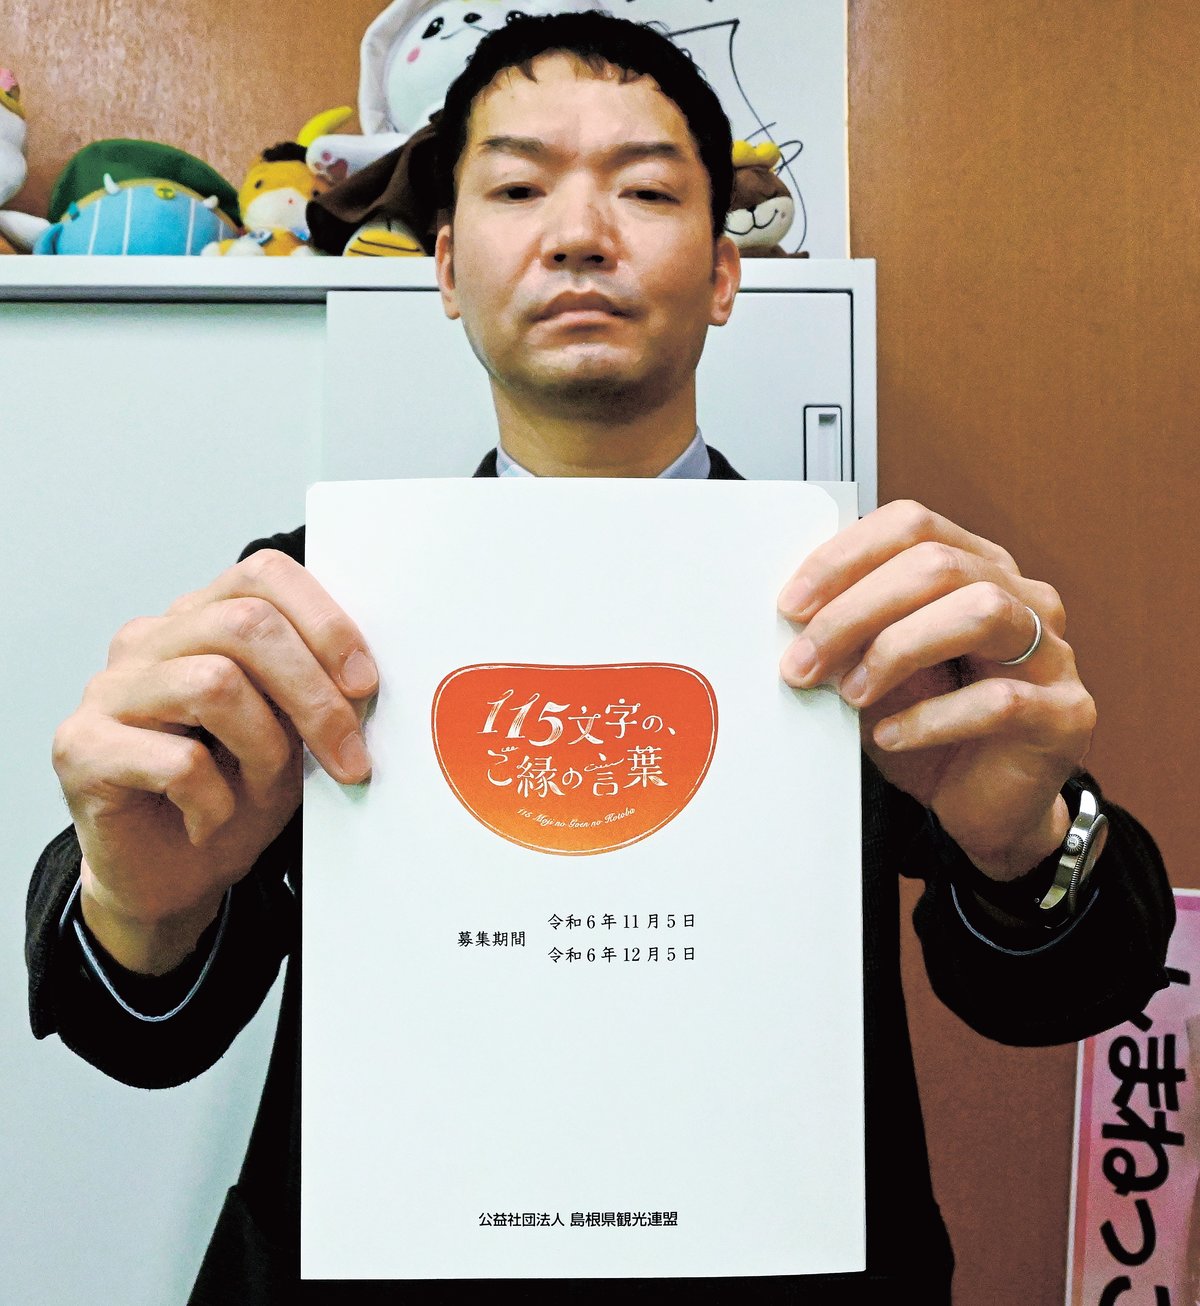 115文字の、
ご縁の言葉
115 Moji no Goen no Kotoba
募集期間
令和6年11月5日
令和6年12月5日
公益社団法人 島根県観光連盟
しまねっこ